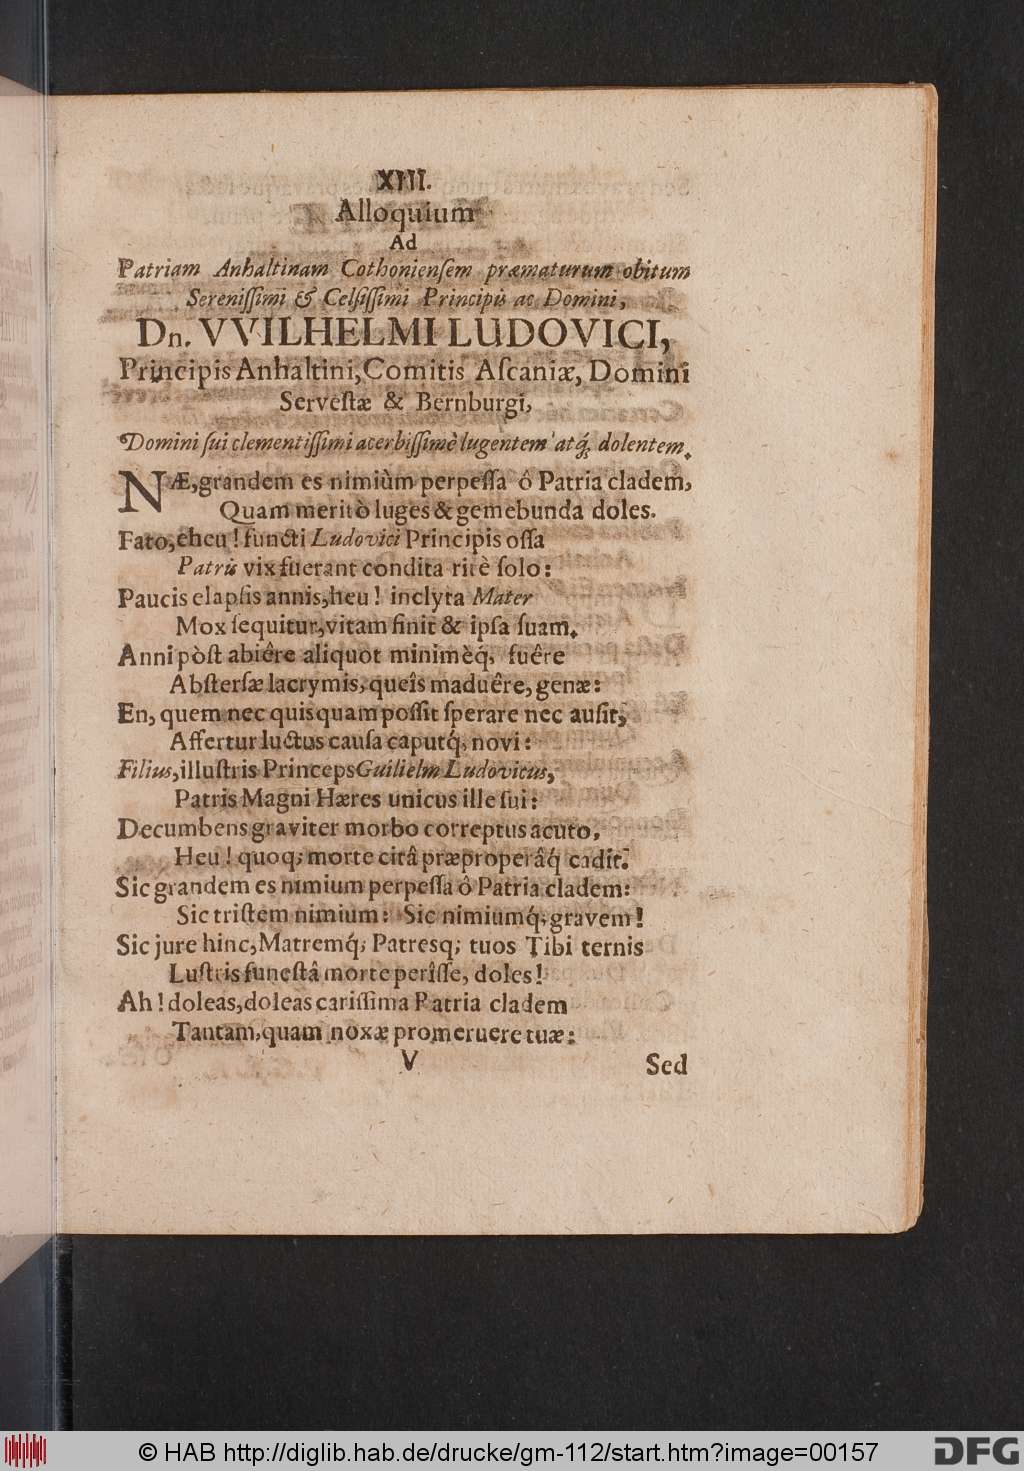 XIII.
Alloquium
Ad
Patriam Anhaltinam Cothonienſem præmaturum obitum
Sereniſſimi & Celſiſſimi Principis ac Domini,
Dn. VVILHELMI LUDOVICI,
Principis Anhaltini, Comitis Aſcaniæ, Domini
Serveſtæ & Bernburgi,
Domini ſui clementiſſimi acerbiſſimè lugentem atq́; dolentem.
NÆ, grandem es nimiùm perpeſſa ô Patria cladem,
Quam meritò luges & gemebunda doles.
Fato, eheu! functi Ludovici Principis oſſa
Patris vix fuerant condita ritè ſolo:
Paucis elapſis annis, heu! inclyta Mater
Mox ſequitur, vitam finit & ipſa ſuam.
Anni pòſt abiêre aliquot minimèq́; fuêre
Abſterſæ lacrymis, queîs maduêre, genæ:
En, quem nec quisquam poſſit ſperare nec auſit,
Affertur luctus cauſa caputq́; novi:
Filius, illuſtris Princeps Guilielm Ludovicus,
Patris Magni Hæres unicus ille ſui:
Decumbens graviter morbo correptus acuto,
Heu! quoq; morte citâ præproperâq́ cadit.
Sic grandem es nimium perpeſſa ô Patria cladem:
Sic triſtem nimium: Sic nimiumq́; gravem!
Sic jure hinc, Matremq́; Patresq; tuos Tibi ternis
Luſtris funeſtâ morte perîſſe, doles!
Ah! doleas, doleas cariſſima Patria cladem
Tantam, quam noxæ promeruere tuæ:
V
Sed
© HAB http://diglib.hab.de/drucke/gm-112/start.htm?image=00157
DFG